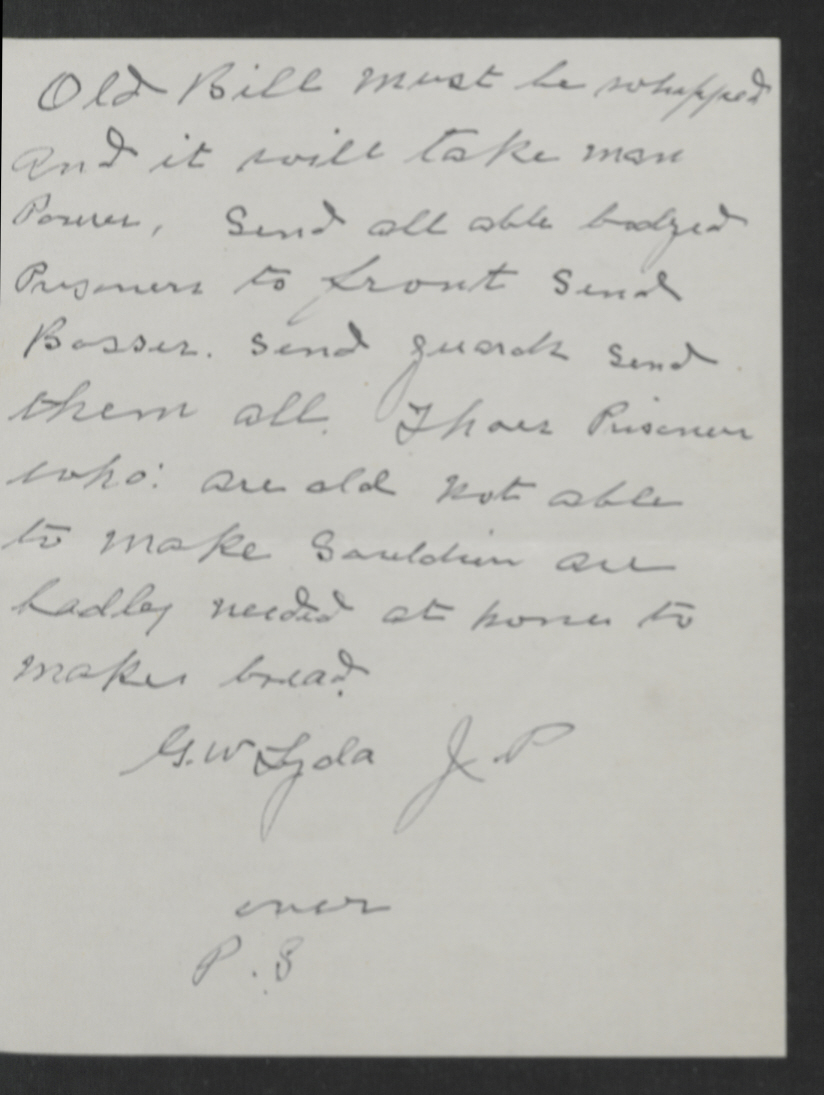 Old Bill must be whipped
and it will take man
Power, Send all able bodyed
Prisoners to front Send
Bosses. Send guards send
them all. Thoes Prisoners
who: are old not able
to make Souldiers are
badley needed at home to
make bread.
G. W Lyda J. P
over
P. S